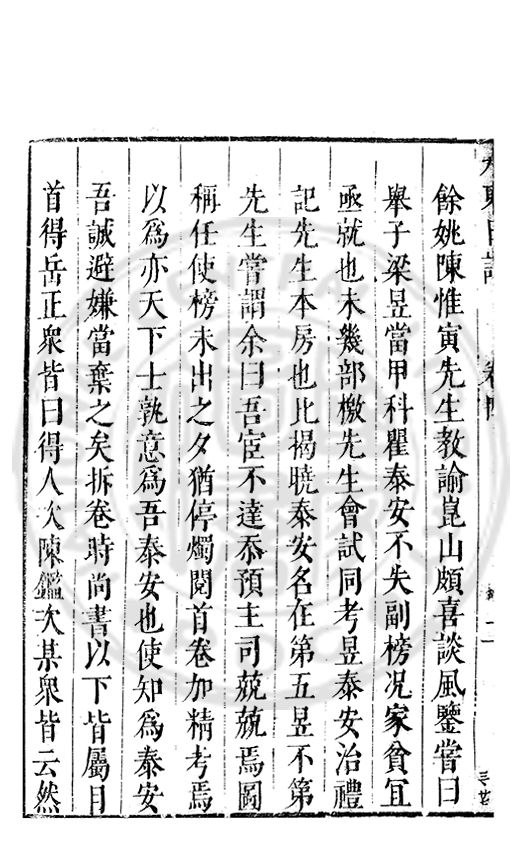 餘姚陳惟寅先生教諭崑山頗喜談風鑒嘗曰
舉子梁昱當甲科瞿泰安不失副榜况家貧宜
亟就也未幾部檄先生會試同考昱泰安治禮
記先生本房也比揭曉泰安名在第五昱不第
先生嘗謂余曰吾宦不達忝預主司兢兢焉圖
稱任使榜未出之夕猶停燭閱首卷加精考焉
以為亦天下士孰意為吾泰安也使知為泰安
吾誠避嫌當棄之矣拆卷時尚書以下皆屬目
首得岳正衆皆曰得人次陳鑑次某衆皆云然